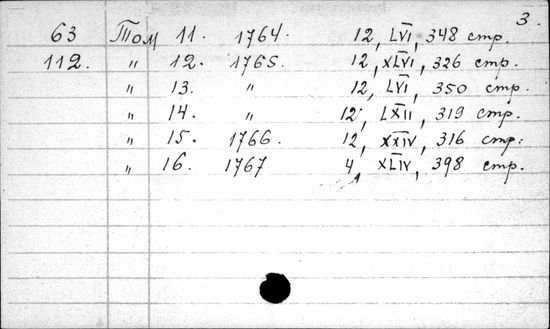 3.
63 Том 11. 1764. 12, LVI, 348 стр.
112. " 12. 1765. 12, XLVI, 326 стр.
" 13. " 12, LVI, 350 стр.
" 14. " 12, LXII, 319 стр.
" 15. 1766. 12, XXIV, 316 стр.
" 16. 1767 4, XLIV, 398 стр.